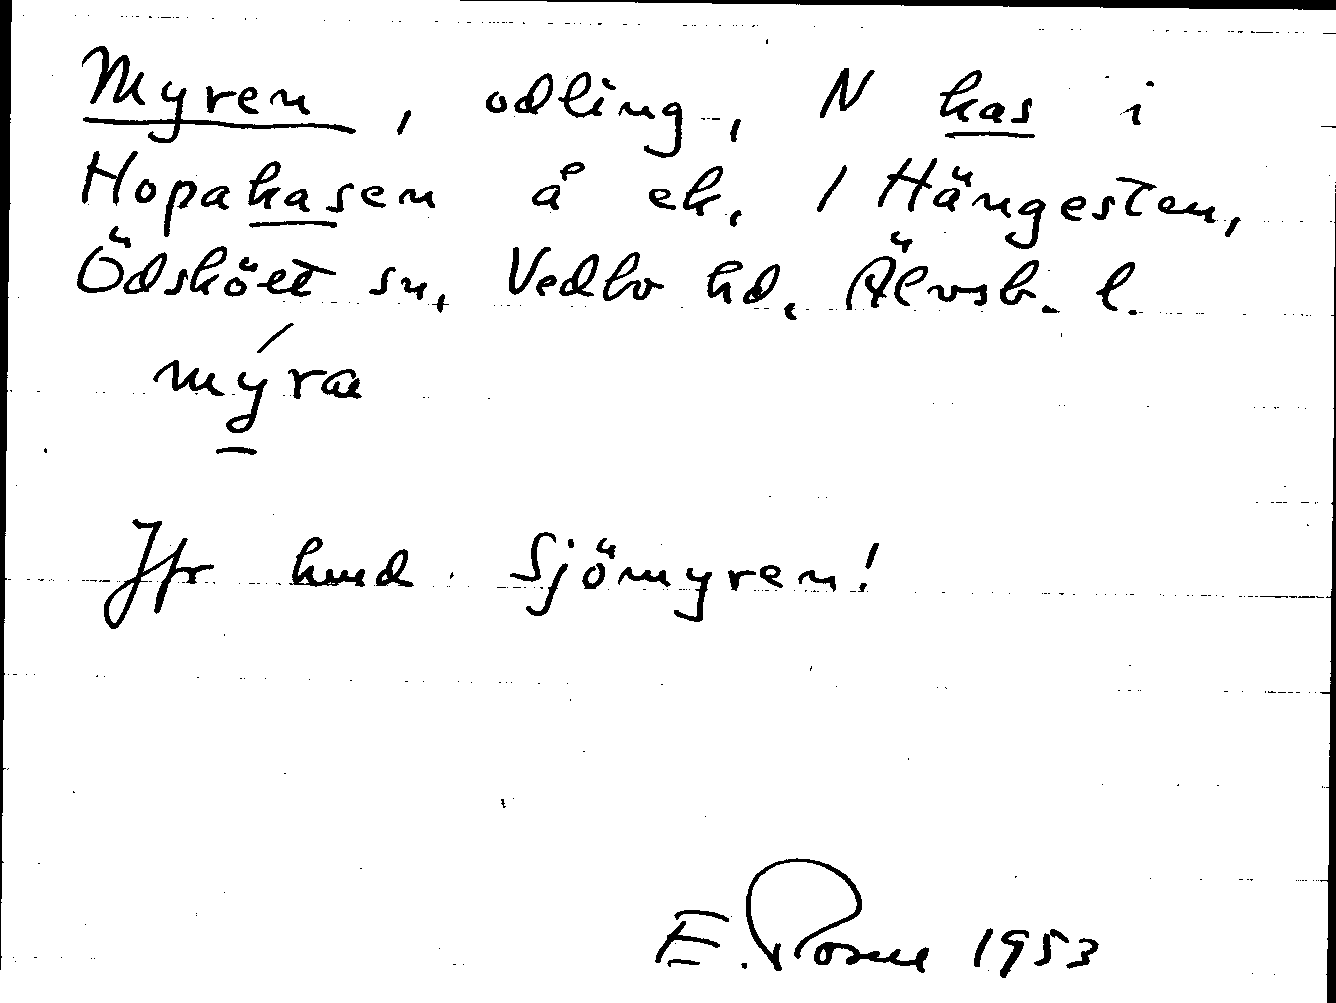 Myren, odling, N kas i
Hopakasen å ek. 1 Hängesten,
Ödskölt sn, Vedbo hd, Älvsb. l.
mýra
Jfr hmd Sjömyren!
E. 1953